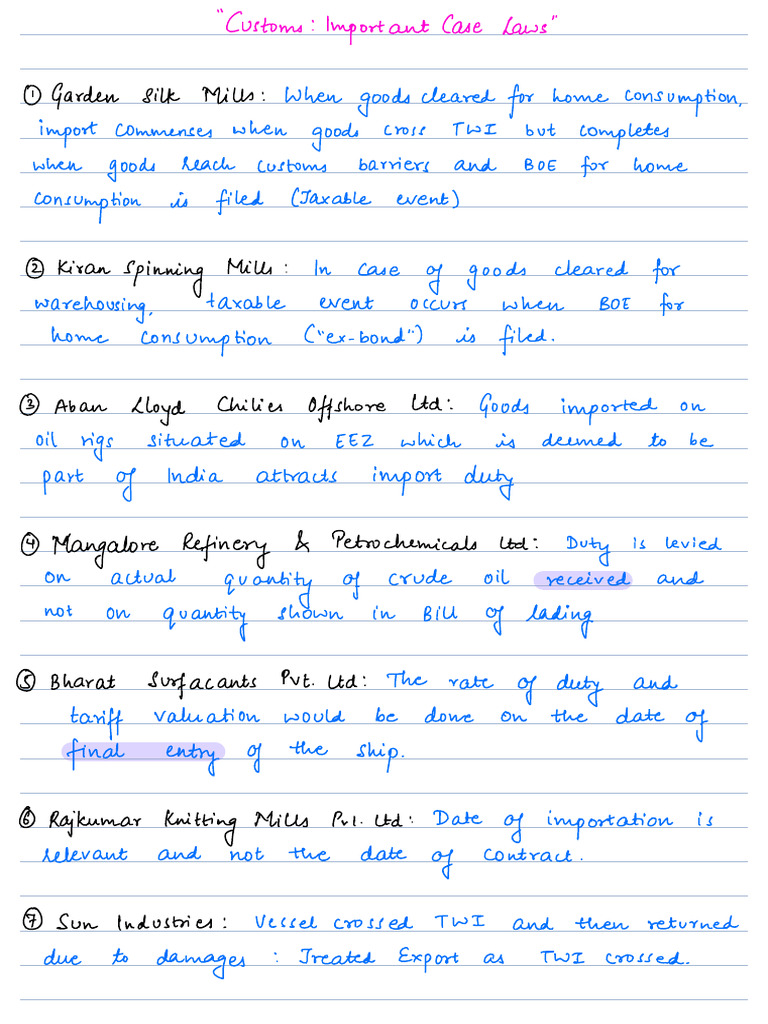 "Customs: Important Case Laws"
① Garden Silk Mills: When goods cleared for home consumption,
import commenses when goods cross TWI but completes
when goods reach customs barriers and BOE for home
consumption is filed (Taxable event)
② Kiran Spinning Mills: In case of goods cleared for
warehousing, taxable event occurs when BOE for
home consumption ("ex-bond") is filed.
③ Aban Lloyd Chilies Offshore Ltd: Goods imported on
oil rigs situated on EEZ which is deemed to be
part of India attracts import duty
④ Mangalore Refinery & Petrochemicals Ltd: Duty is levied
on actual quantity of crude oil received and
not on quantity shown in Bill of lading
⑤ Bharat Surfacants Pvt. Ltd: The rate of duty and
tariff valuation would be done on the date of
final entry of the ship.
⑥ Rajkumar Knitting Mills Pvt. Ltd: Date of importation is
relevant and not the date of contract.
⑦ Sun Industries: Vessel crossed TWI and then returned
due to damages: Treated Export as TWI crossed.